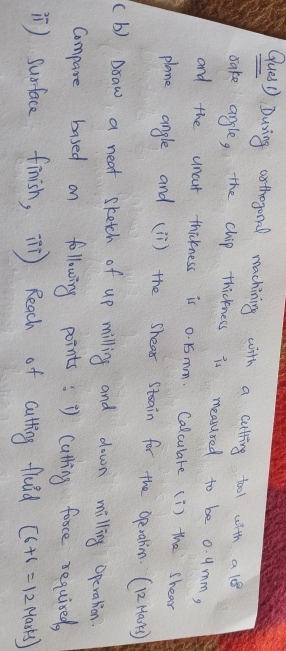 Ques 1) During orthogonal machining with a cutting tool with a 10°
rake angle, the chip thickness is measured to be 0.4 mm,
and the uncut thickness is 0.15 mm. Calculate (i) the shear
plane angle and (ii) the shear strain for the operation. (12 Marks)
(b) Draw a neat sketch of up milling and down milling operation.
Compare based on following points: i) Cutting force required,
ii) Surface finish, iii) Reach of cutting fluid [6+6=12 Marks]